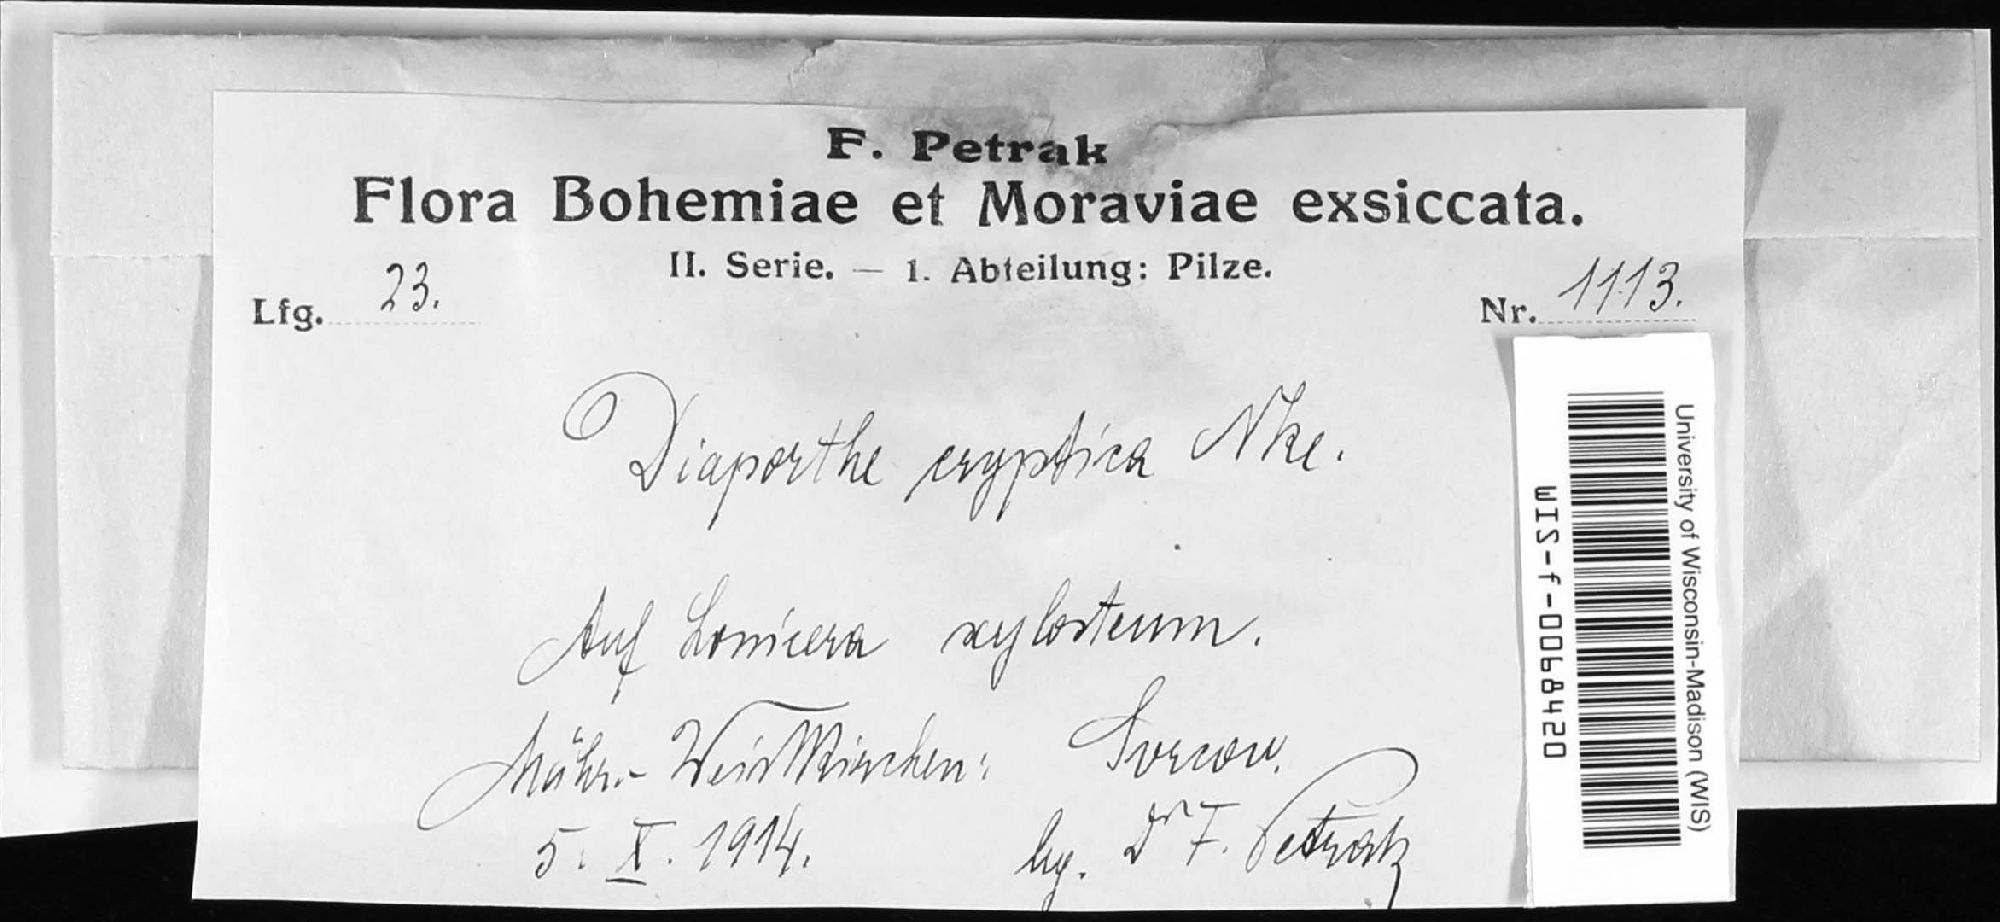 F. Petrak
Flora Bohemiae et Moraviae exsiccata.
II. Serie. — 1. Abteilung: Pilze.
Lfg. 23.
Nr. 1113.
Diaporthe cryptica Nke.
Auf Lonicera xylosteum.
Mähr.-Weisskirchen:
5. X. 1914.
lg. Dr F. Petrak
University of Wisconsin-Madison (WIS)
WIS-f-0068420